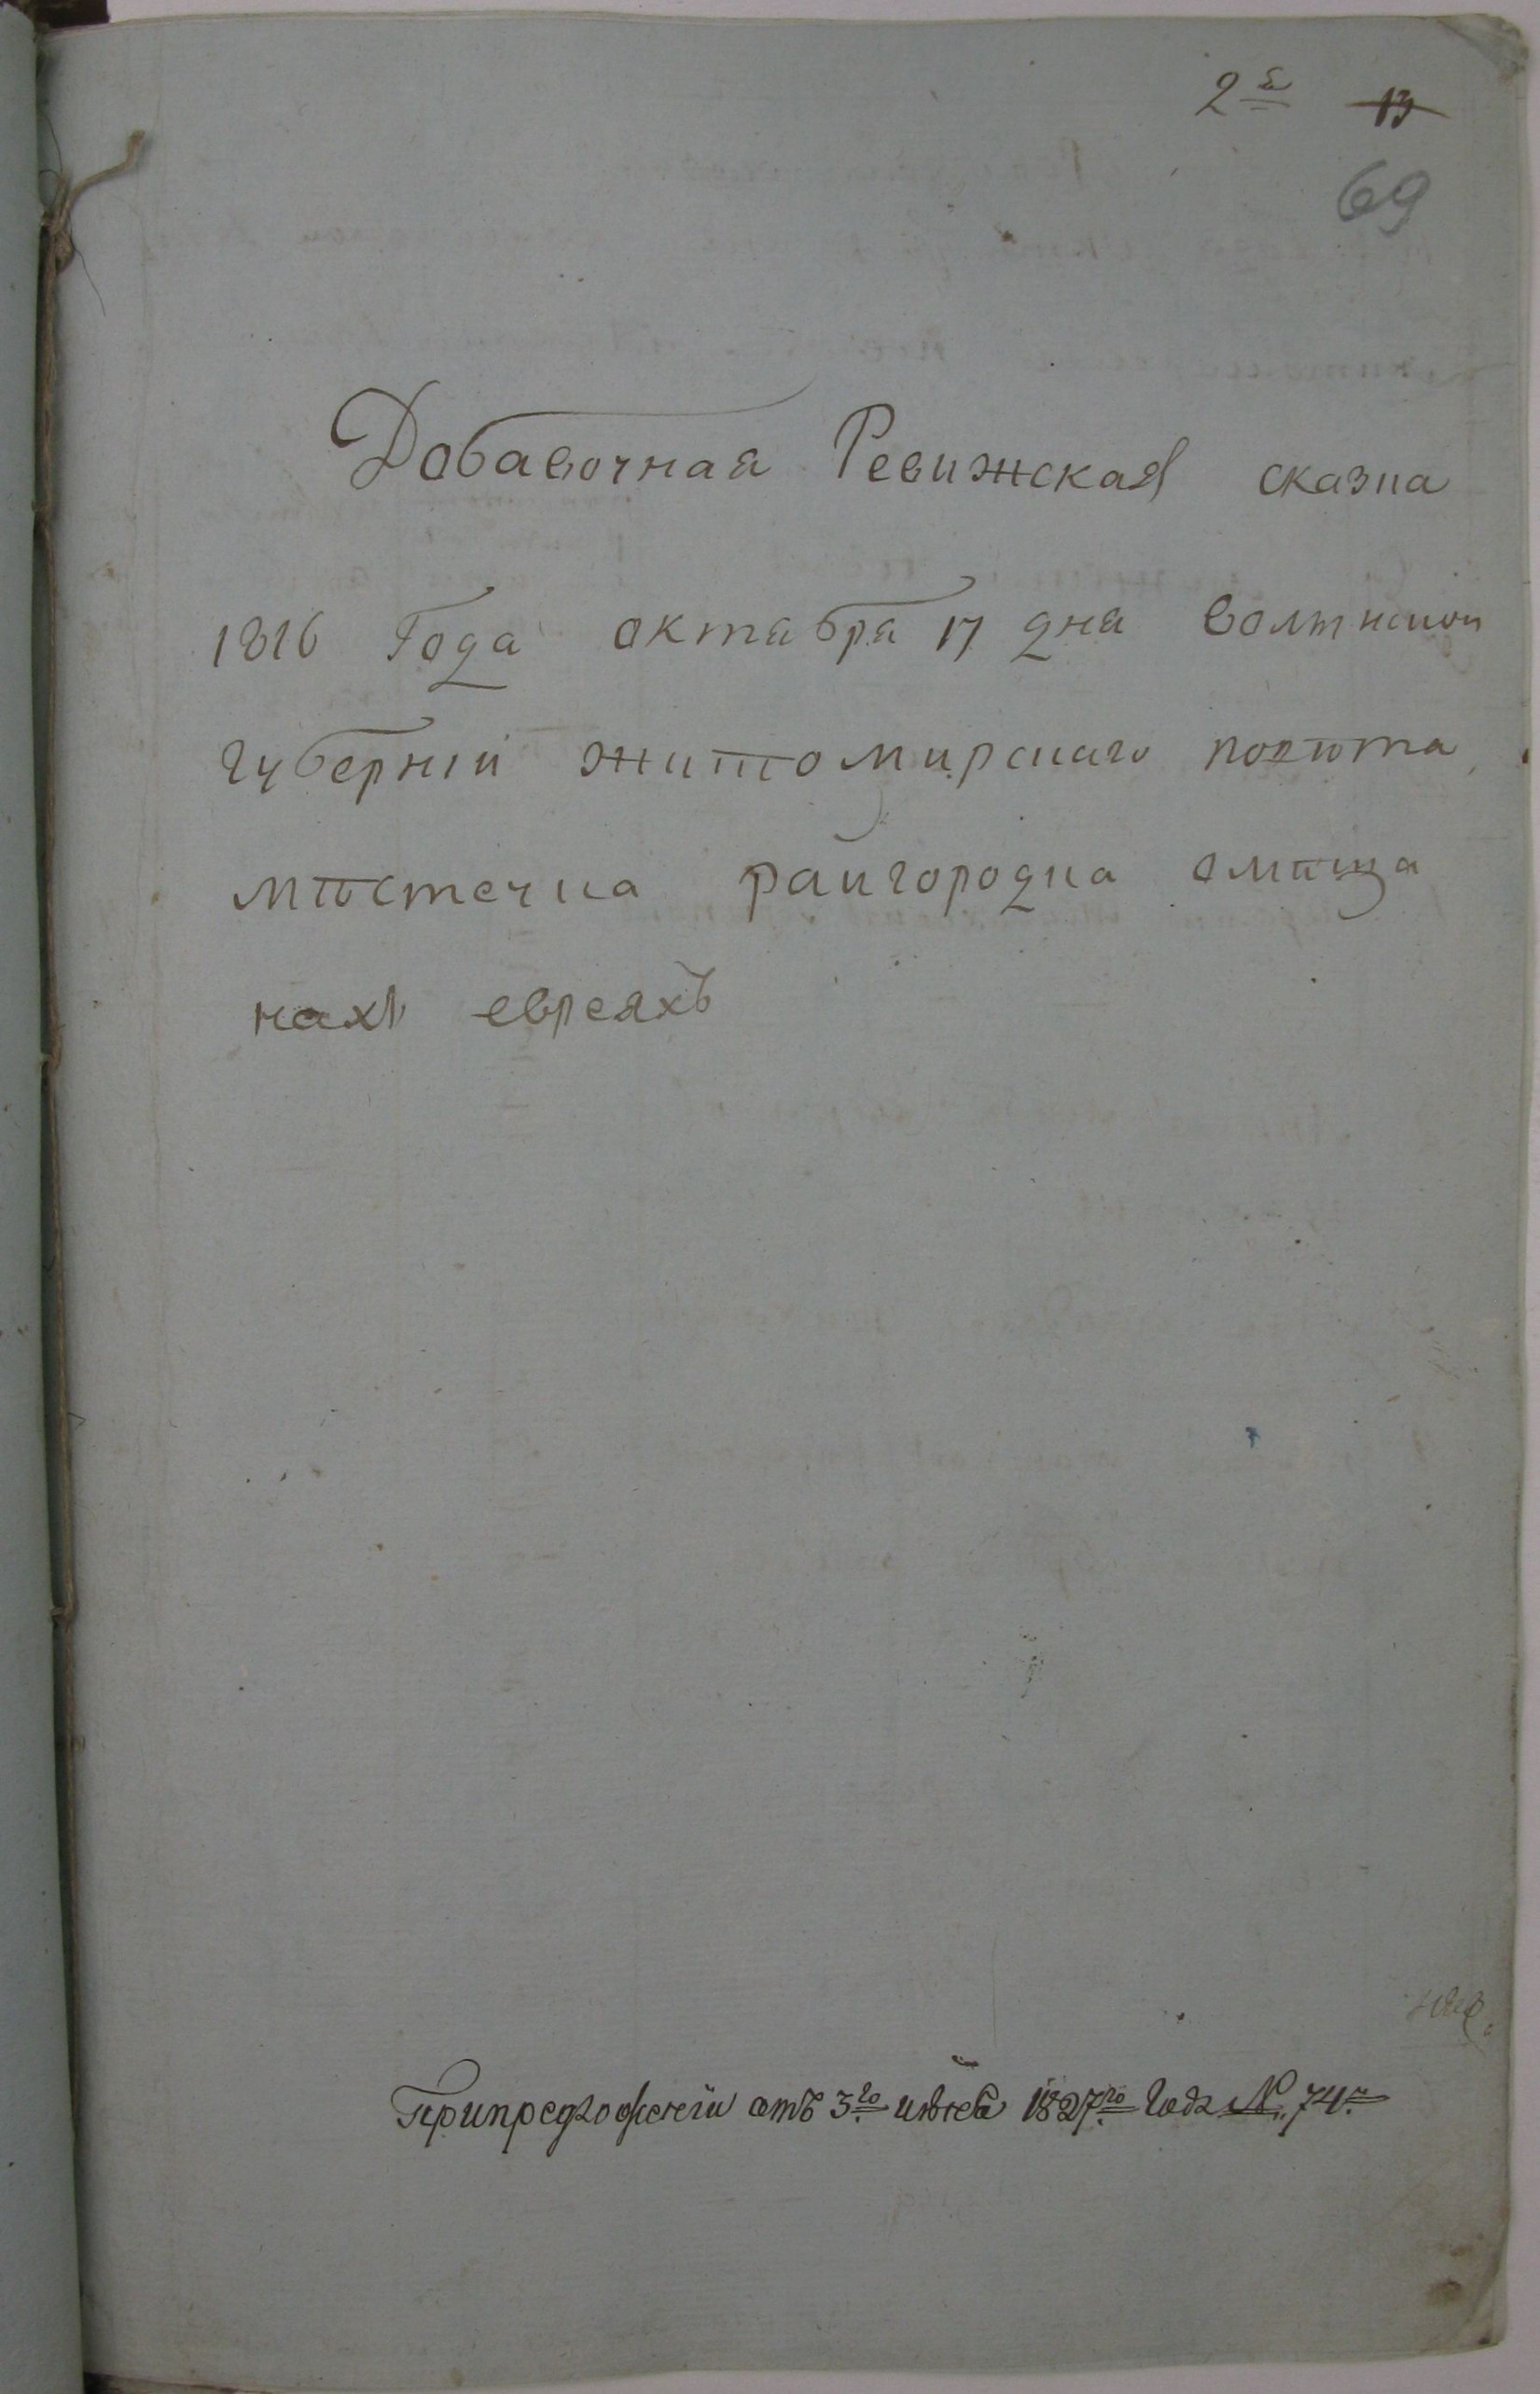 2я 13
69
Добавочная Ревижская сказка
1816 Года октабра 17 дна волынской
губернии житомирскаго повѣта
мѣстечка райгородка омѣща
нахъ евреяхъ
При предложеніи отъ 3го июня 1827го Года № 74.